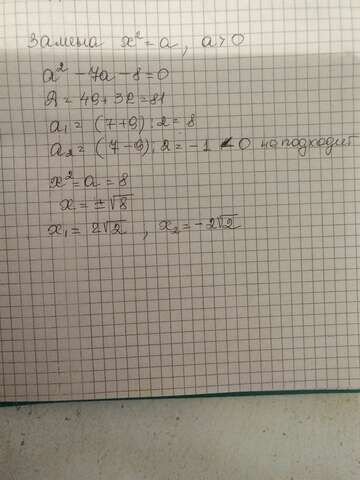 Замена x² = a, a > 0
a² - 7a - 8 = 0
D = 49 + 32 = 81
a₁ = (7+9) : 2 = 8
a₂ = (7-9) : 2 = -1 < 0 не подходит
x² = a = 8
x = ±√8
x₁ = 2√2 , x₂ = -2√2